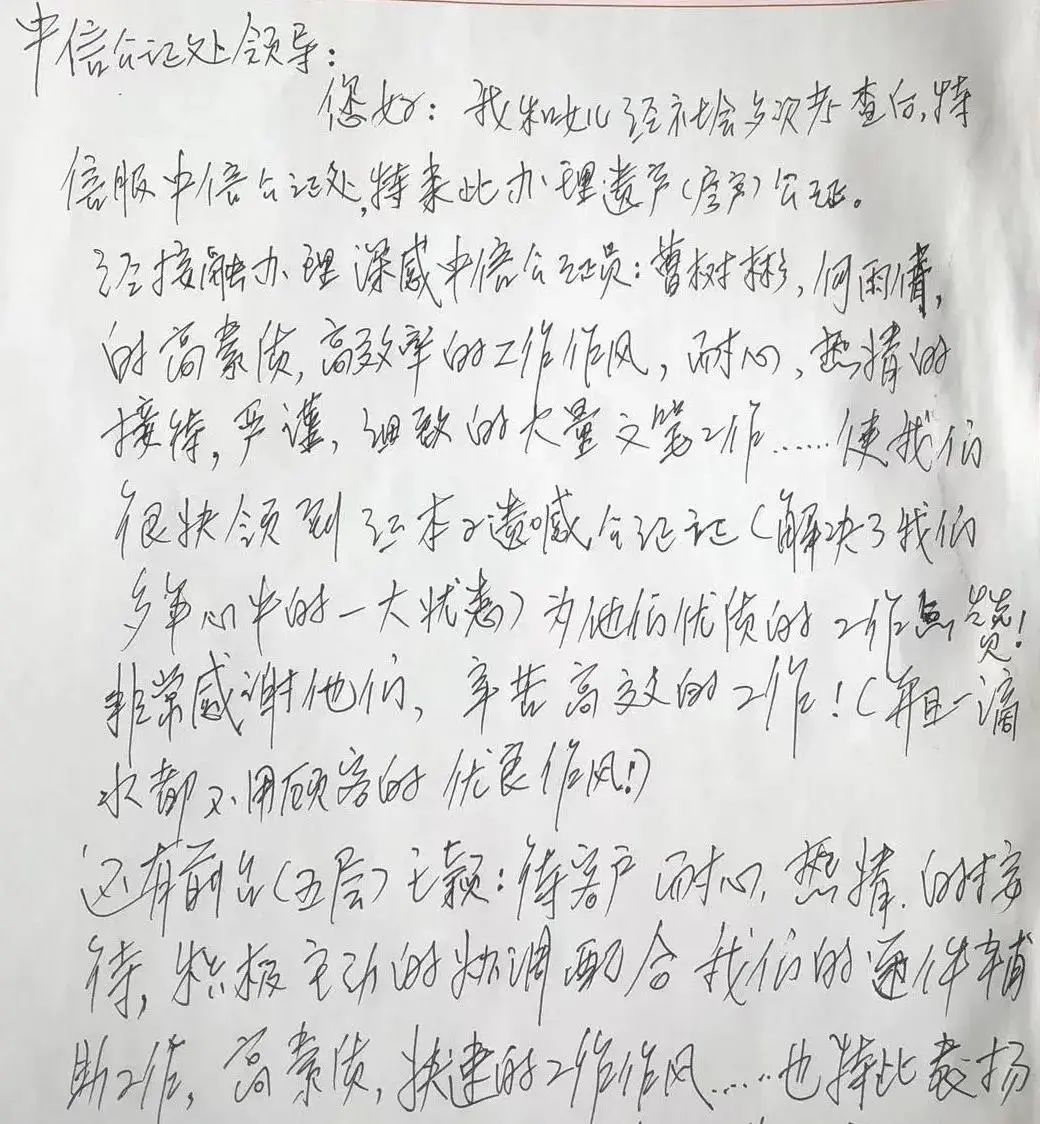 中信公证处领导：
您好：我和女儿经社会多次考查后,特
信服中信公证处,特来此办理遗产(房产)公证。
经接触办理深感中信公证员：曹树彬,何雨倩,
的高素质,高效率的工作作风,耐心,热情的
接待,严谨,细致的大量文笔工作……使我们
很快领到 公证证(解决了我们
多年心中的一大忧愁)为他们优质的工作点赞!
非常感谢他们,辛苦高效的工作!(并且一滴
水都不用顾客的优良作风!)
还有前台(五层)王颖：待客户耐心,热情.的接
待,积极主动的协调配合我们的 件辅
助工作,高素质,快速的工作作风……也特此表扬